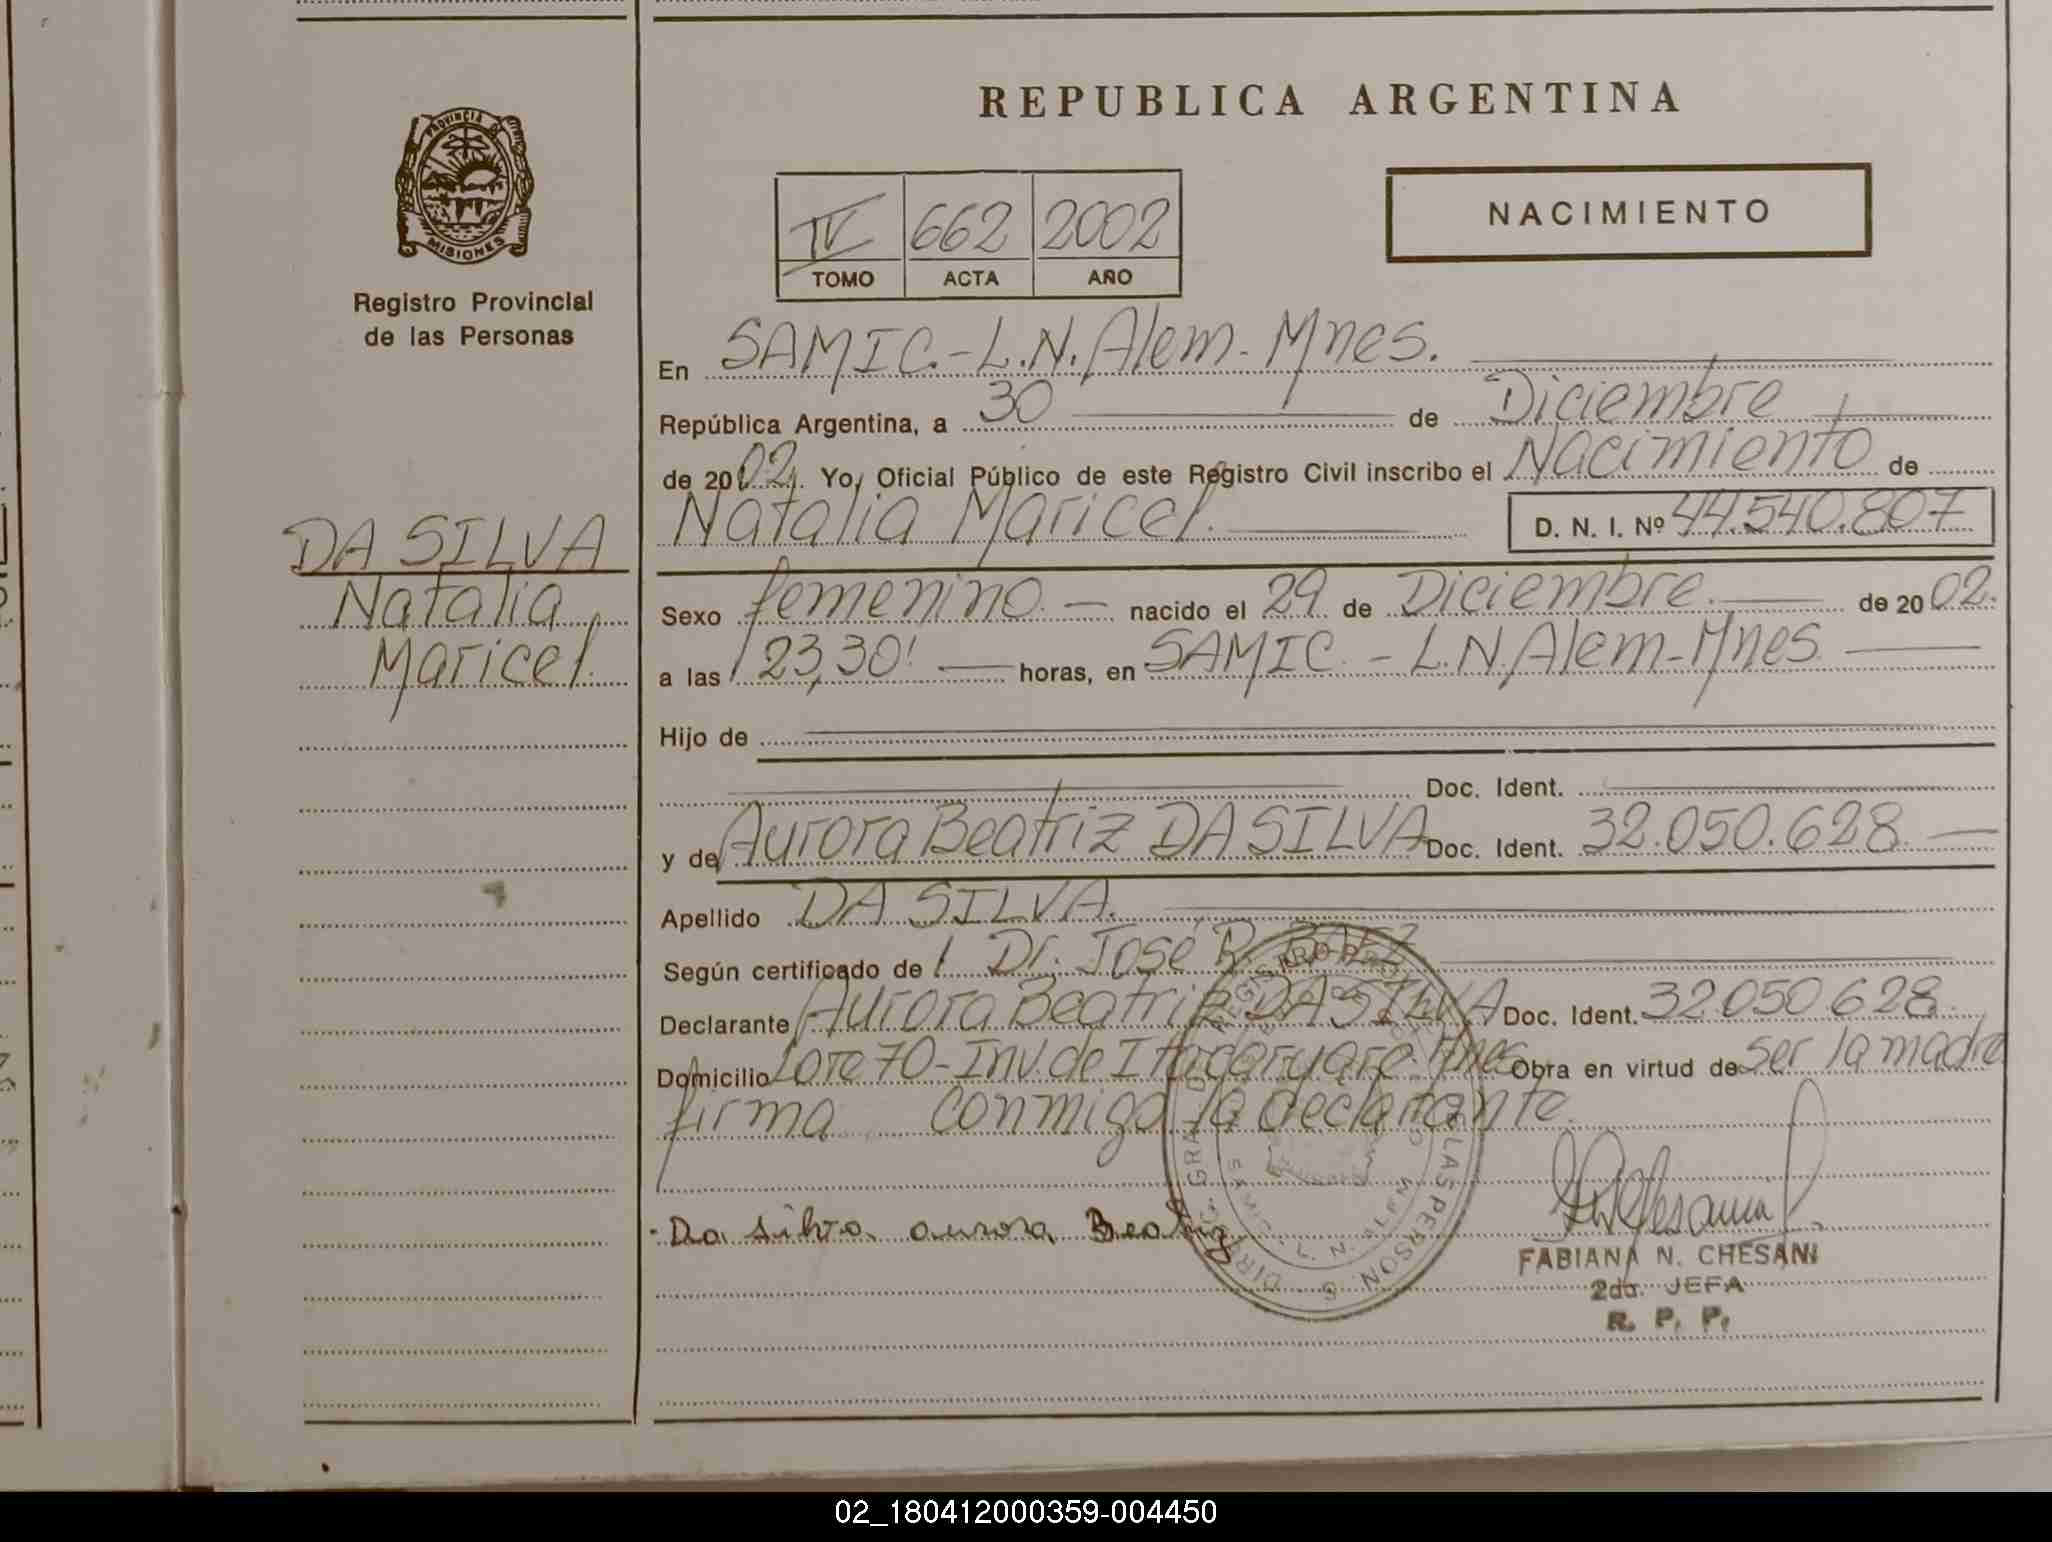 REPUBLICA ARGENTINA
PROVINCIA DE
MISIONES
Registro Provincial
de las Personas
IV 662 2002
TOMO ACTA AÑO
NACIMIENTO
En SAMIC.-L.N.Alem-Mnes.
República Argentina, a 30 de Diciembre
de 2002. Yo, Oficial Público de este Registro Civil inscribo el Nacimiento de
Natalia Maricel. D. N. I. Nº 44.540.807
DA SILVA
Natalia
Maricel.
Sexo femenino. nacido el 29 de Diciembre. de 2002.
a las 23,30' horas, en SAMIC.-L.N.Alem-Mnes.
Hijo de
Doc. Ident.
y de Aurora Beatriz DA SILVA Doc. Ident. 32.050.628.
Apellido DA SILVA.
Según certificado de Dr. José R. BAEZ
Declarante Aurora Beatriz DA SILVA Doc. Ident. 32.050.628.
Domicilio Lote 70-Inv.de Itacaruare. Mnes Obra en virtud de ser la madre
firma conmigo la declarante.
Da silva aurora Beatriz
FABIANA N. CHESANI
2da. JEFA
R. P. P.
02_180412000359-004450